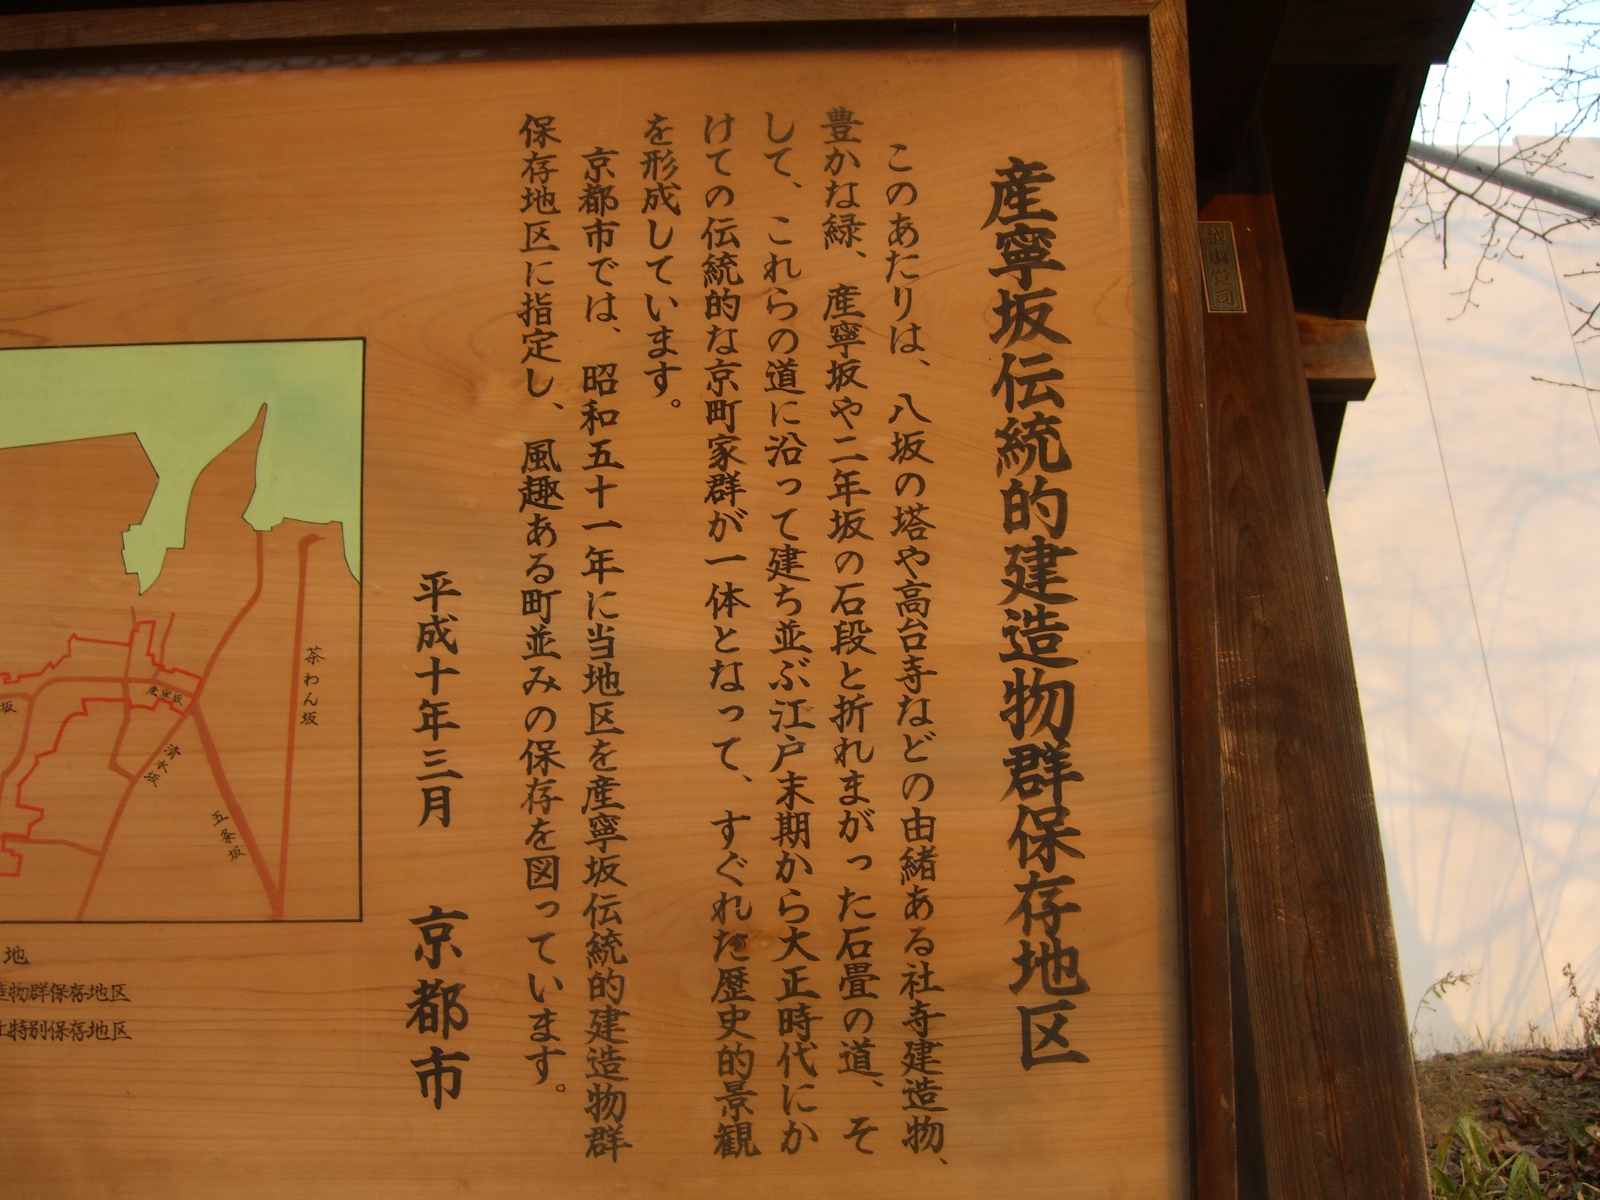 産寧坂伝統的建造物群保存地区
このあたりは、八坂の塔や高台寺などの由緒ある社寺建造物、
豊かな緑、産寧坂や二年坂の石段と折れまがった石畳の道、そ
して、これらの道に沿って建ち並ぶ江戸末期から大正時代にか
けての伝統的な京町家群が一体となって、すぐれた歴史的景観
を形成しています。
京都市では、昭和五十一年に当地区を産寧坂伝統的建造物群
保存地区に指定し、風趣ある町並みの保存を図っています。
平成十年三月 京都市
茶わん坂
産寧坂
清水坂
五条坂
坂
地
造物群保存地区
特別保存地区